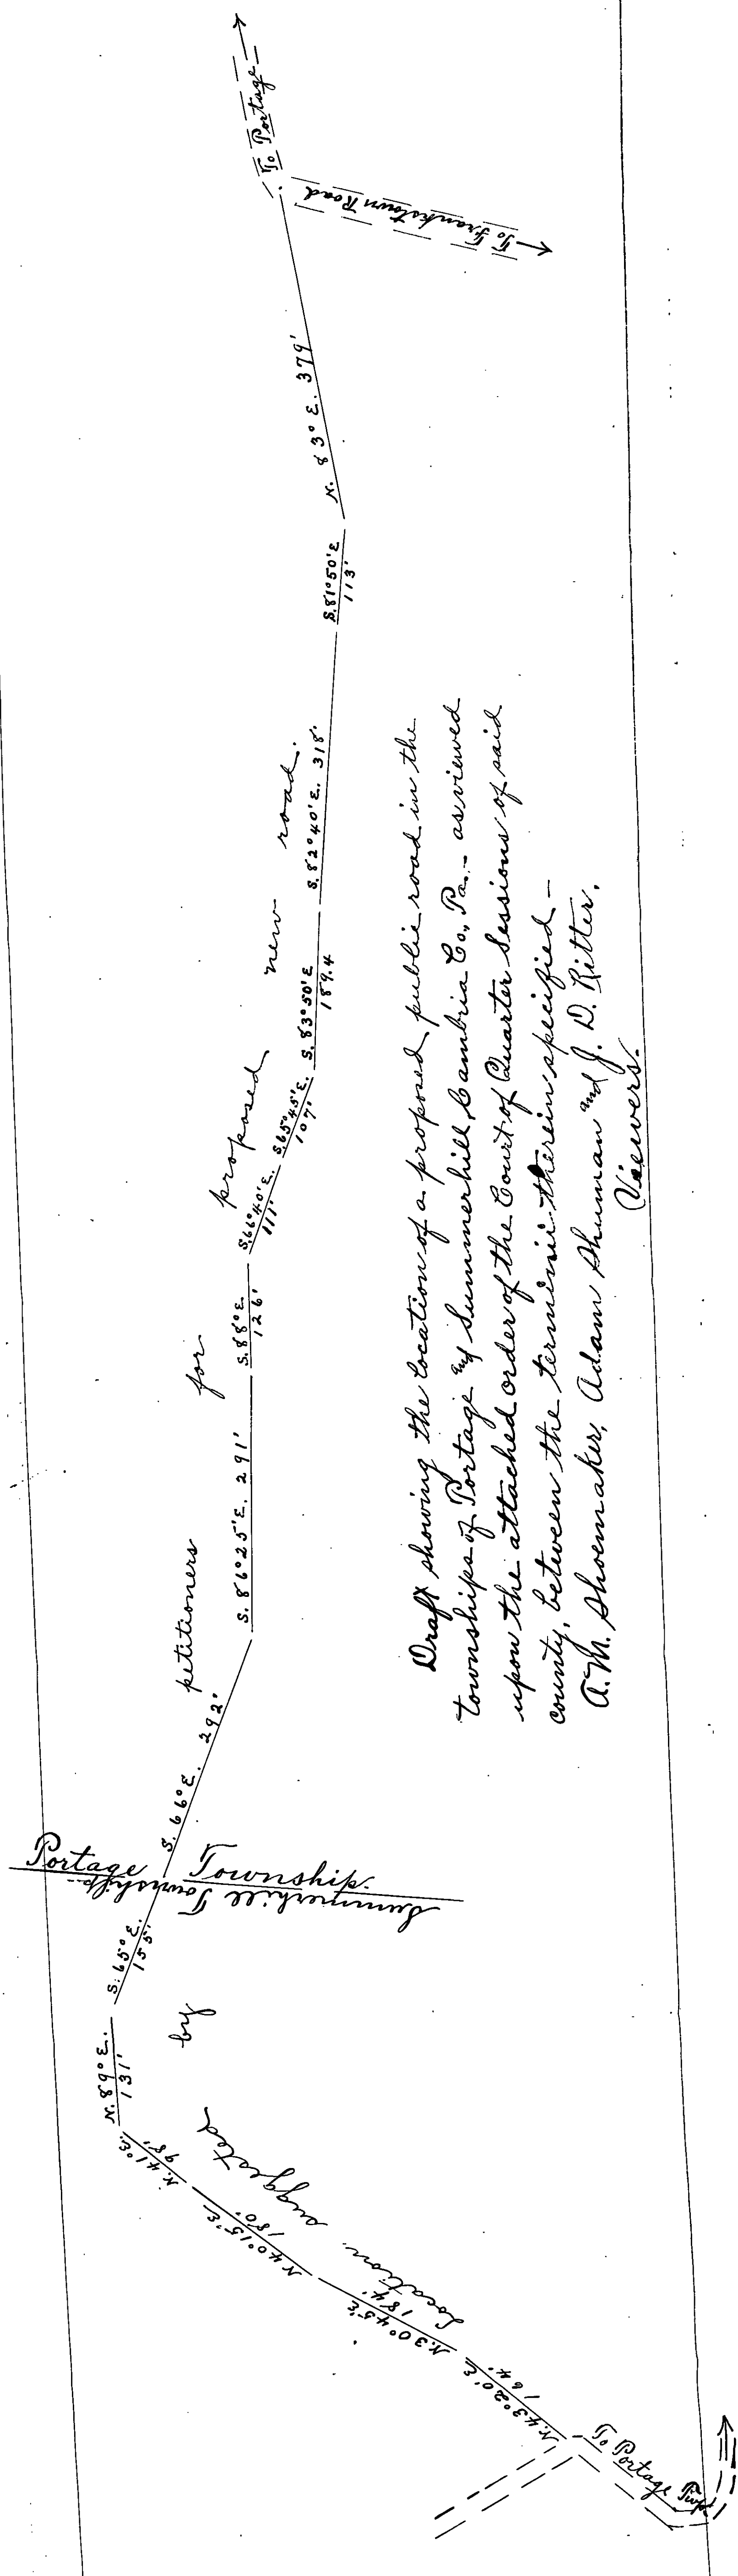 To Portage
To Frankstown Road
N. 83° E. 379'
S. 81°50' E
113'
S. 82°40' E. 318'
S. 83°50' E
189.4
S. 65°45' E.
107'
S. 66°40' E.
111'
S. 88° E.
126'
S. 86°25' E. 291'
S. 66° E. 292'
Portage Township
Summerhill Township
S. 65° E.
155'
N. 89° E.
131'
N. 41° E.
98'
N 40°15' E
180'
N. 30°45' E
184'
N. 43°20' E
164'
Location suggested by petitioners for proposed new road.
To Portage Twp
Draft showing the location of a proposed public road in the
townships of Portage and Summerhill, Cambria Co., Pa. – as viewed
upon the attached order of the Court of Quarter Sessions of said
county, between the termini therein specified –
A. M. Shoemaker, Adam Shuman and J. D. Ritter.
Viewers.